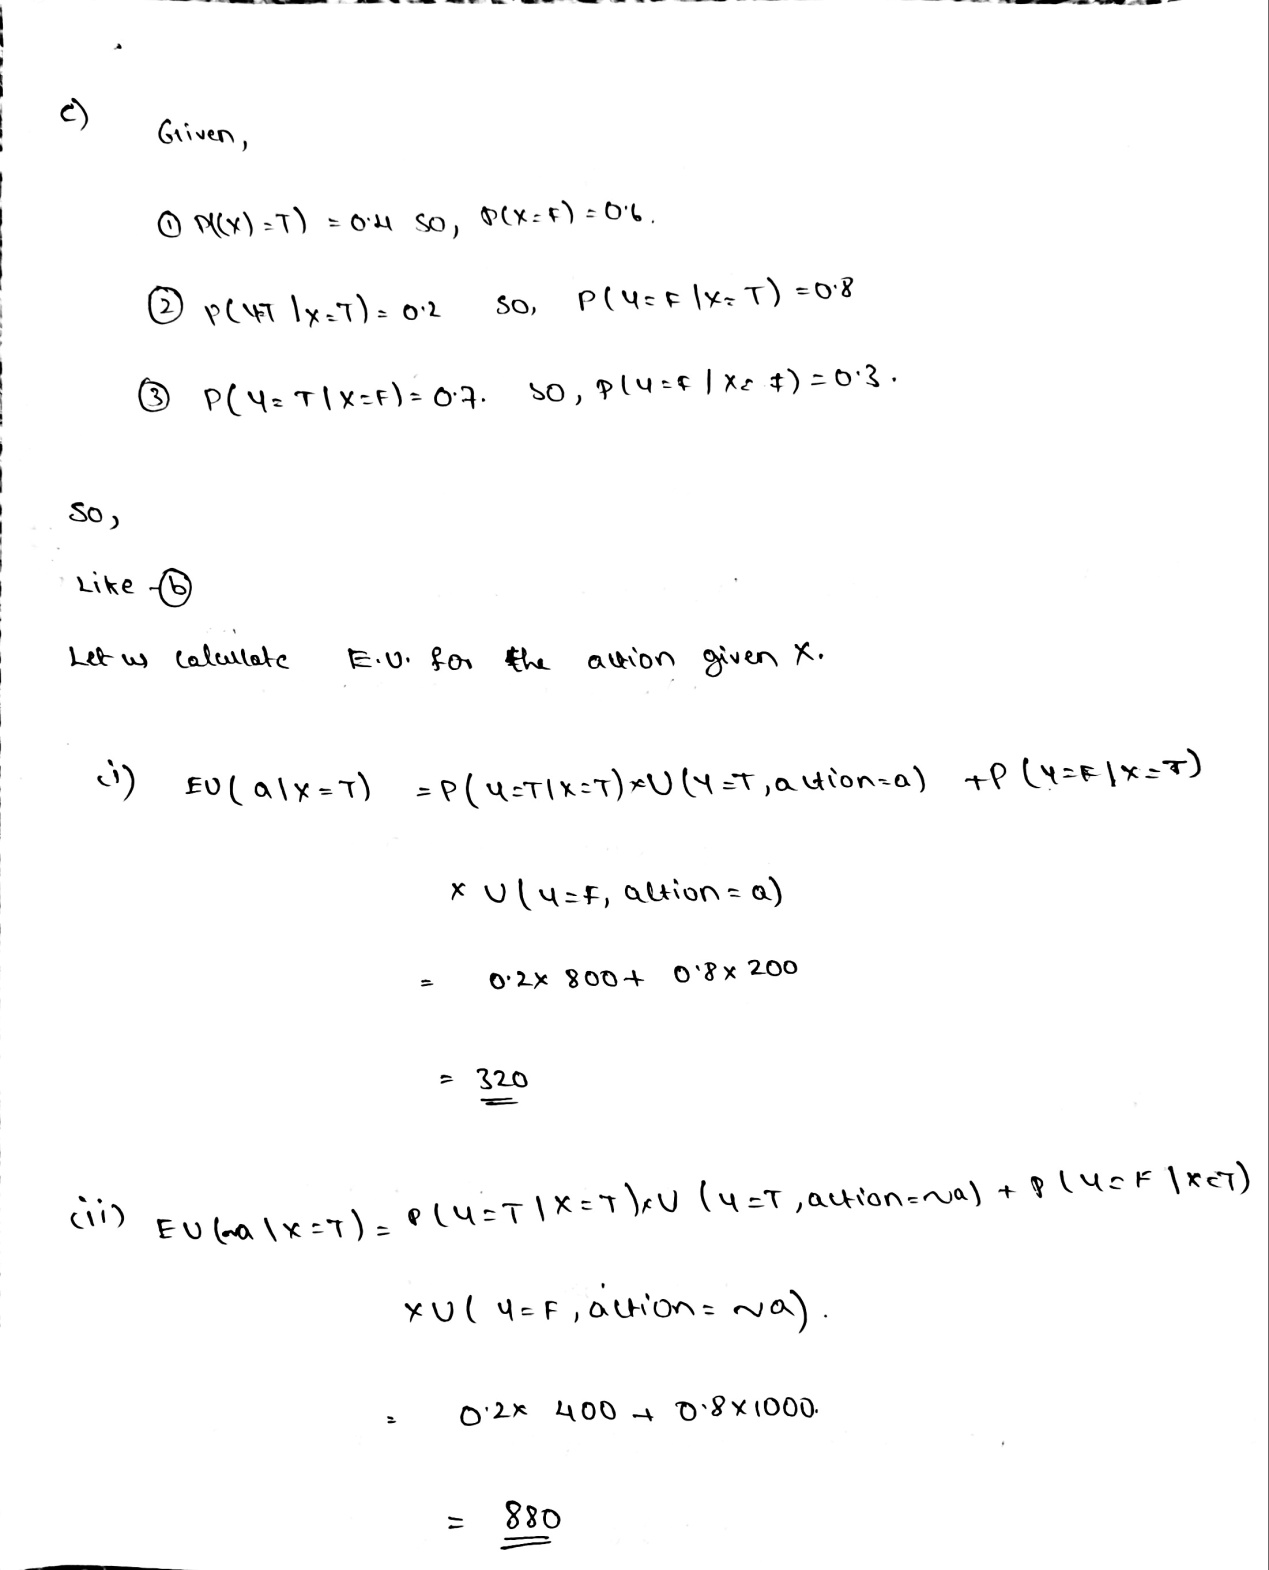 c)
Given,
① P((X)=T) = 0.4 so, P(X=F) = 0.6.
② P(Y=T |X=T) = 0.2 so, P(Y=F |X=T) = 0.8
③ P(Y=T|X=F) = 0.7. so, P(Y=F | X=F) = 0.3.
so,
Like - ⓑ
Let us calculate E.U. for the action given X.
(i) EU(a|X=T) = P(Y=T|X=T)*U(Y=T, action=a) +P(Y=F|X=T)
x U(Y=F, action=a)
= 0.2x 800+ 0.8x 200
= 320
(ii) EU(~a|X=T) = P(Y=T|X=T)xU (Y=T, action=~a) + P(Y=F |X=T)
xU( Y=F, action= ~a).
= 0.2x 400 + 0.8x1000.
= 880